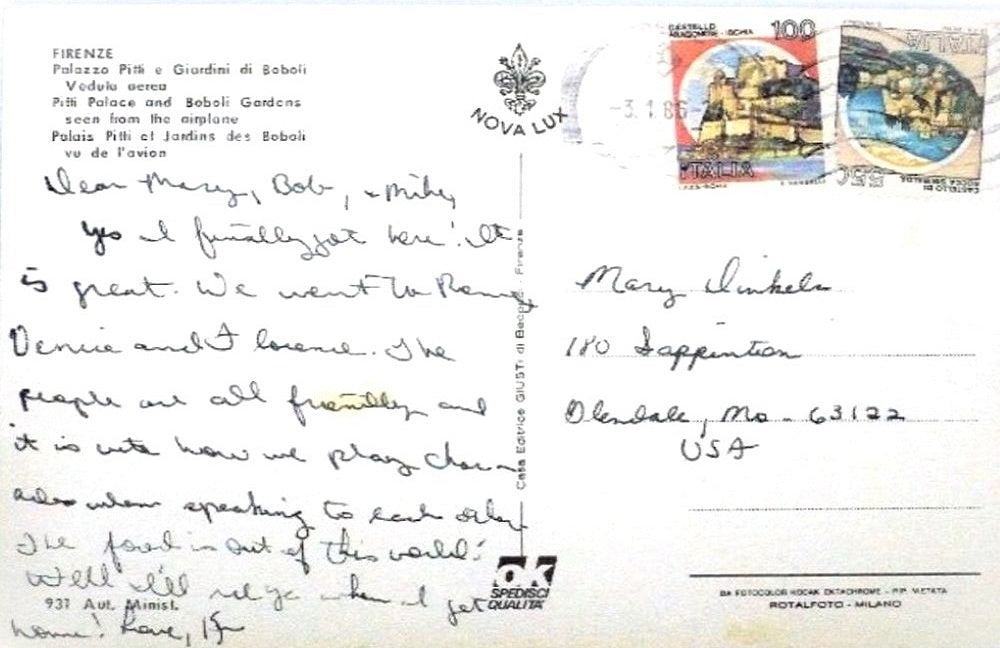 FIRENZE
Palazzo Pitti e Giardini di Boboli
Veduta aerea
Pitti Palace and Boboli Gardens
seen from the airplane
Palais Pitti et Jardins des Boboli
vu de l'avion
NOVA LUX
CASTELLO
ARAGONESE - ISCHIA
100
ITALIA
ITALIA
550
CASTELLO DI
ROCCA SINIBALDA
-3.1.86-
Dear Mary, Bob, & Mike,
Yes I finally got here! It
is great. We went to Rome,
Venice and Florence. The
people are all friendly and
it is how we play char-
ades when speaking to each other
The food is out of this world!
Well I'll see ya when I get
home! Love,
937 Aut. Minist.
Casa Editrice GIUSTI di Becocci - Firenze
Mary Dinkela
180 Sappington
Glendale, Mo - 63122
USA
ok
SPEDISCI
QUALITA'
DA FOTOCOLOR KODAK EKTACHROME - RIP. VIETATA
ROTALFOTO - MILANO